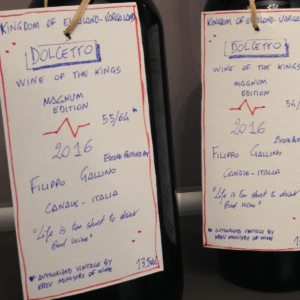 KINGDOM OF ELGALAND-VARGALAND
DOLCETTO
WINE OF THE KINGS
MAGNUM
EDITION
55/64*
2016
ESTATE BOTTLED BY
FILIPPO GALLINO
CANALE - ITALIA
"Life is too short to drink
Bad Wine"
* AUTHORISED VINTAGE BY
KREV MINISTRY OF WINE
13,5%
KINGDOM OF ELGALAND-VARGALAND
DOLCETTO
WINE OF THE KINGS
MAGNUM
EDITION
54/
2016
FILIPPO GALLINO
CANALE - ITALIA
"Life is too short to drink
Bad Wine"
* AUTHORISED VINTAGE BY
KREV MINISTRY OF WINE